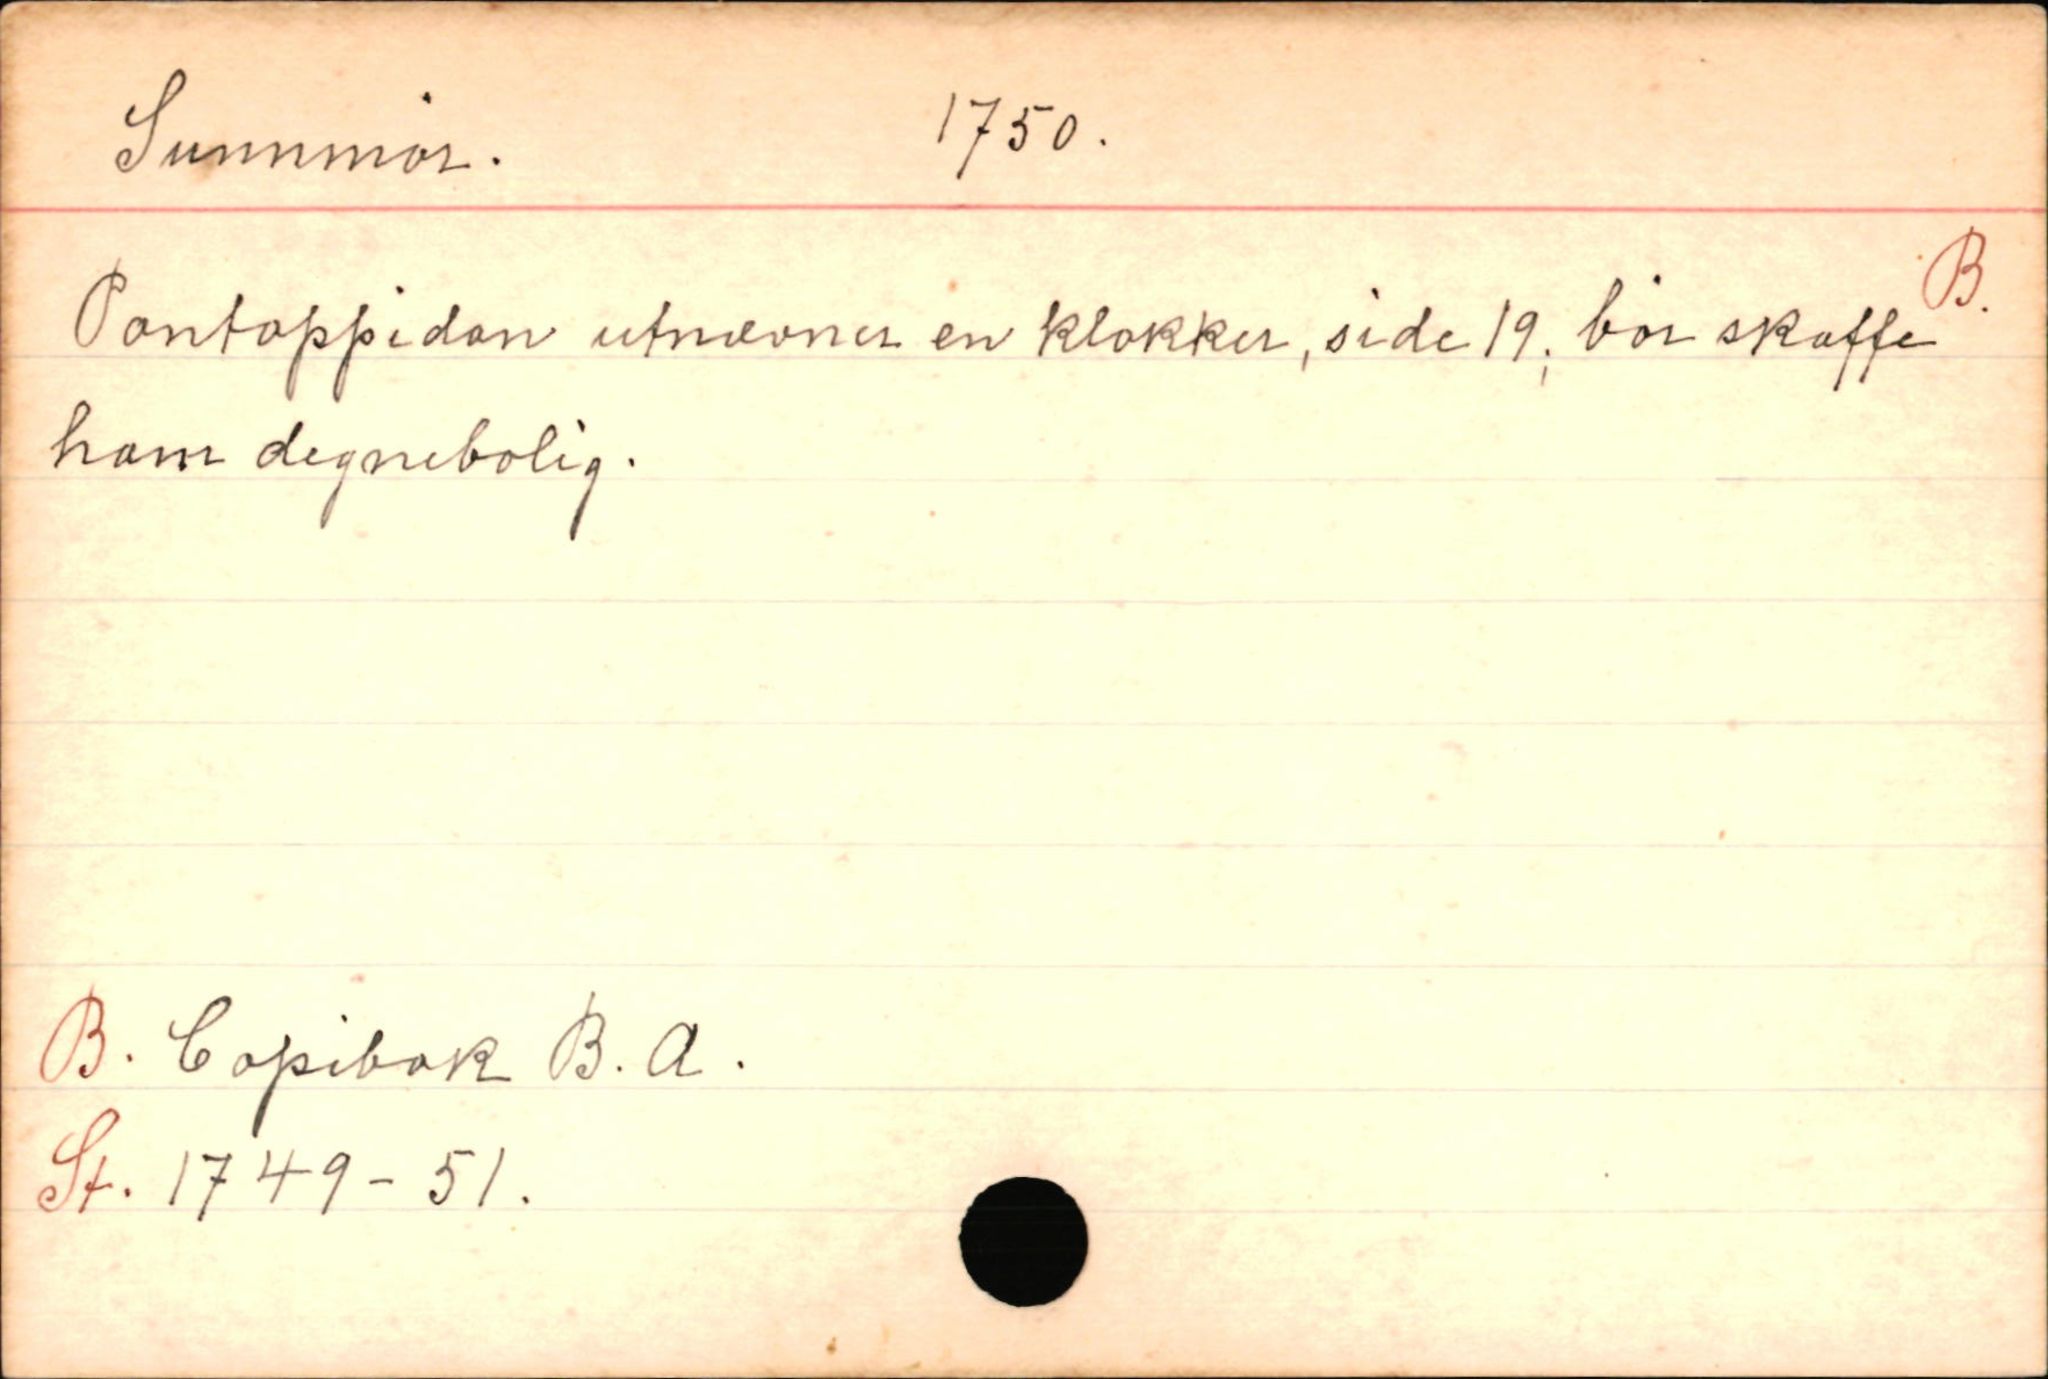 Sunnmør. 1750.
B.
Pontoppidan utnævner en klokker, side 19; bør skaffe
ham degnebolig.
B. Copibok B. A.
St. 1749-51.